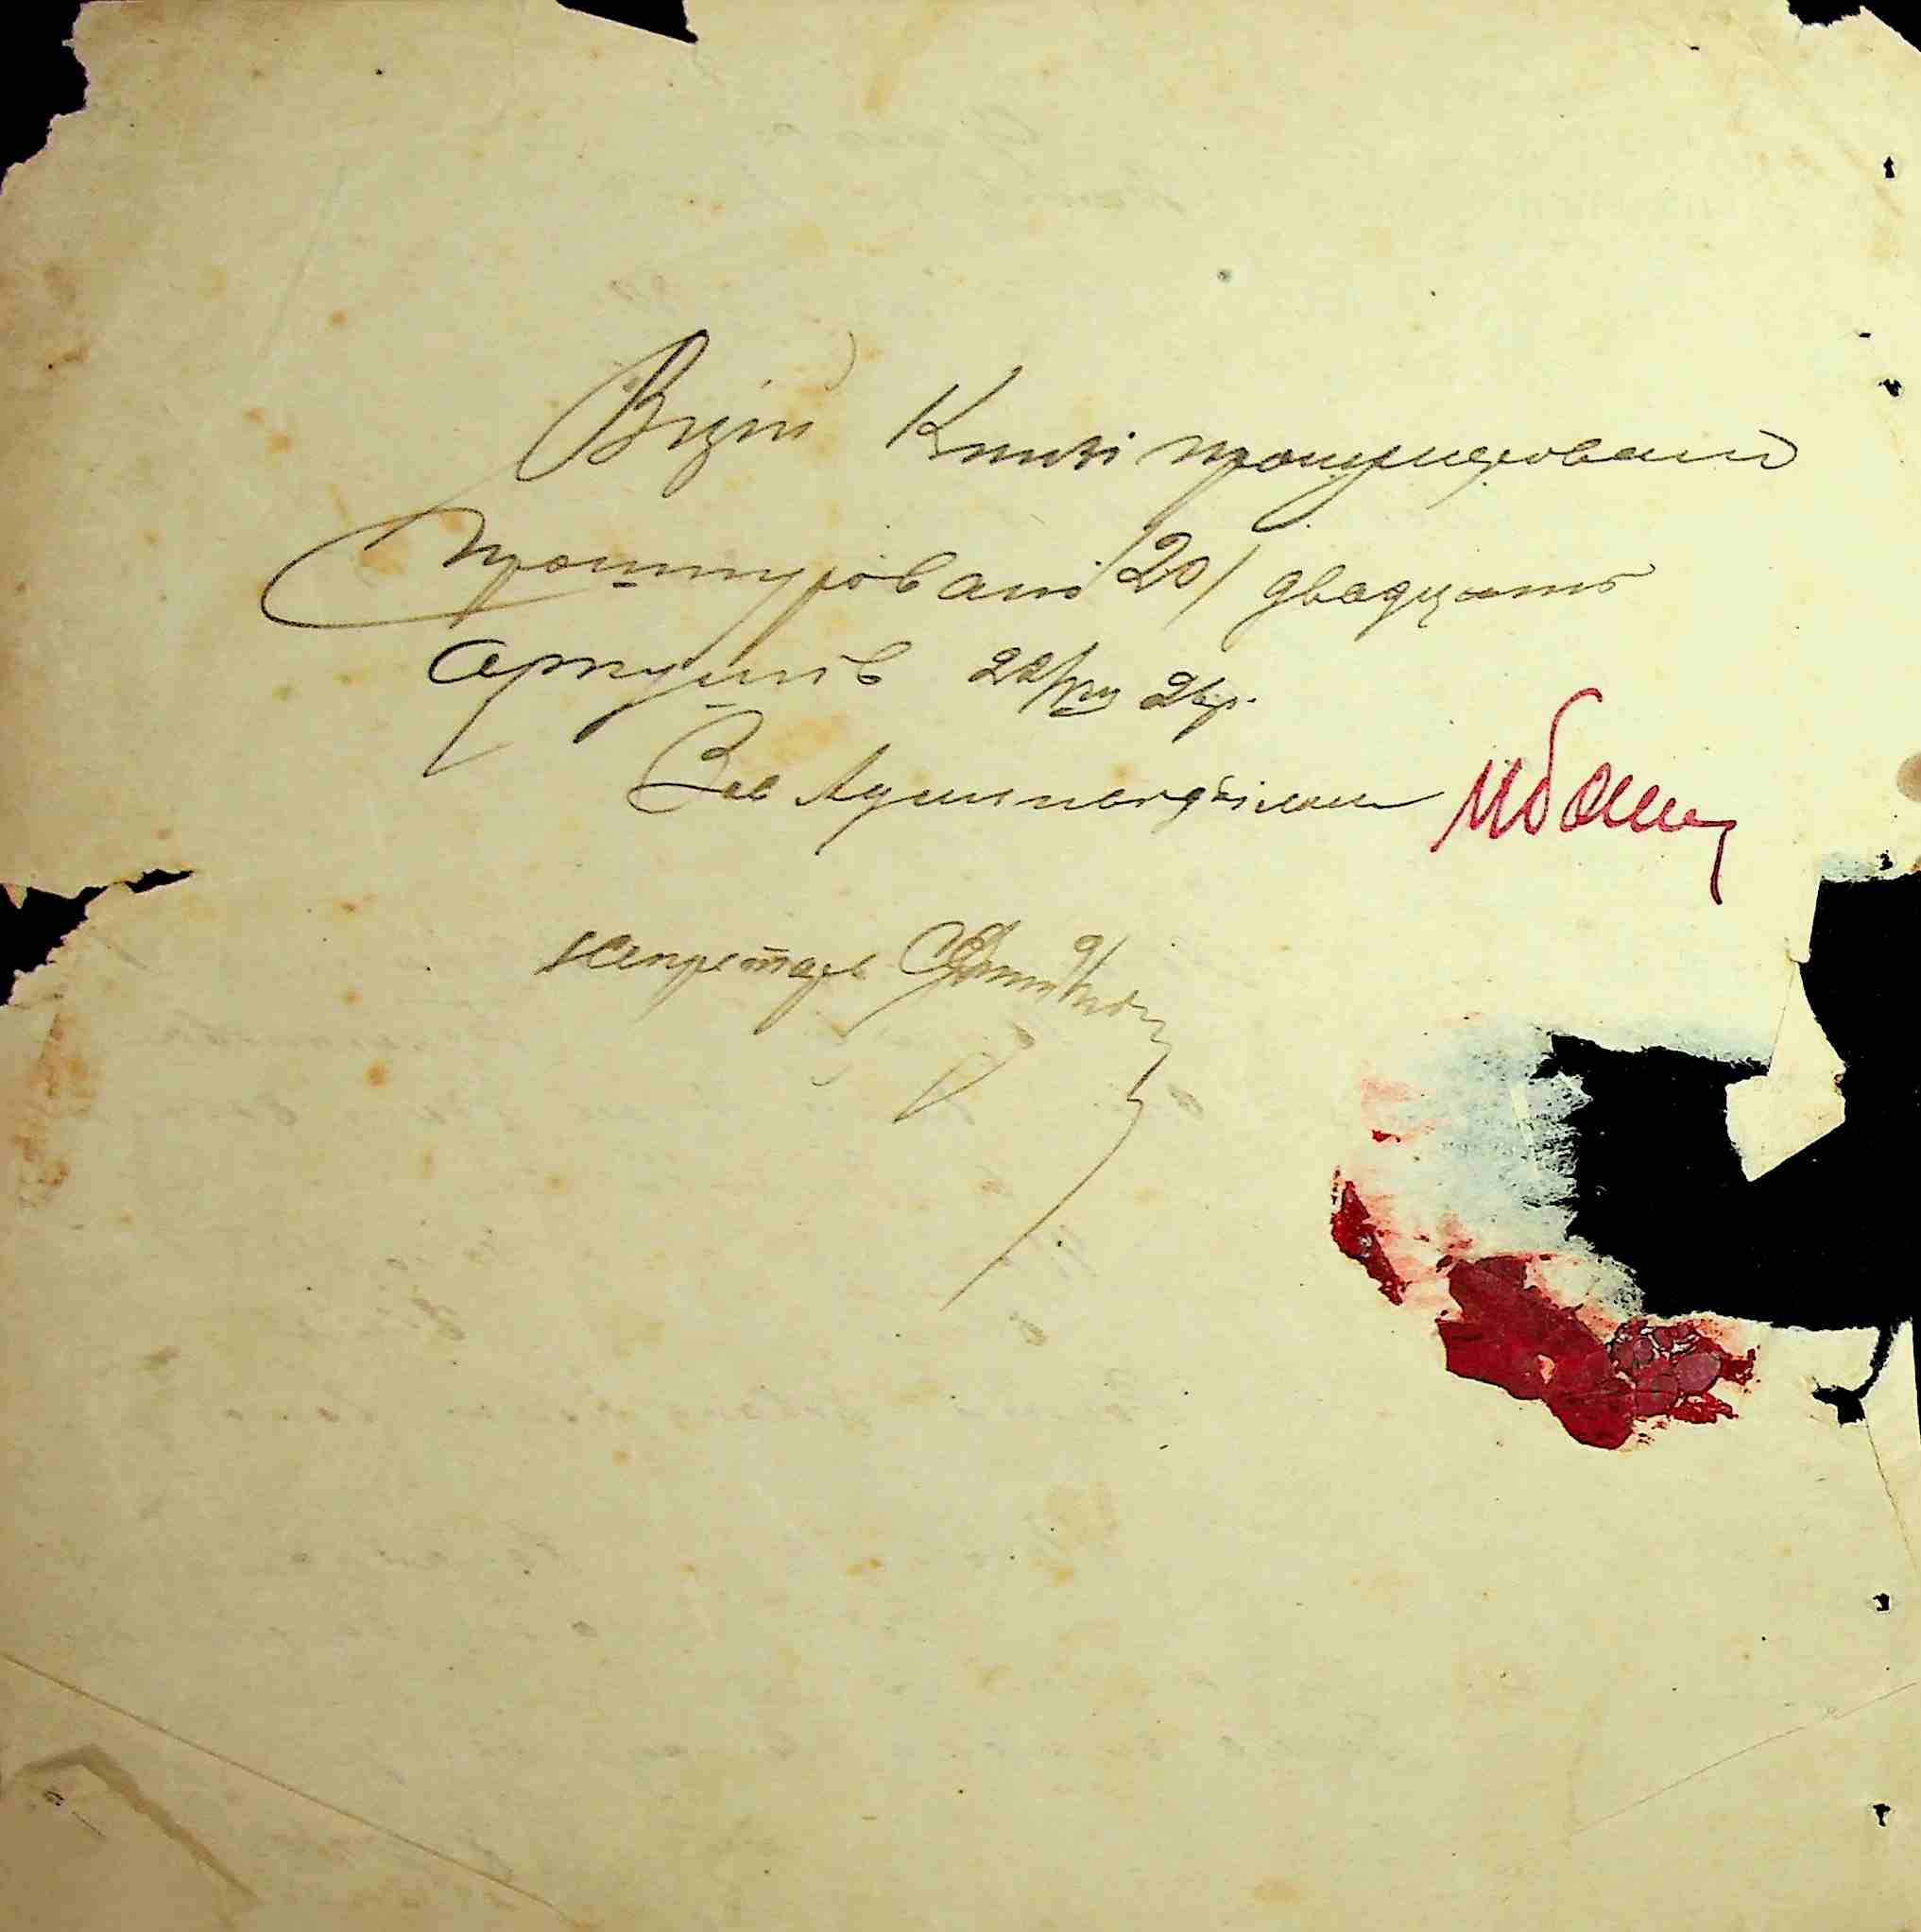 В цій Книзі пронумеровано
прошнуровано /20/ двадцять
аркушів 22/VIII 24 р.
Зав Адмінвідділом
Секретарь